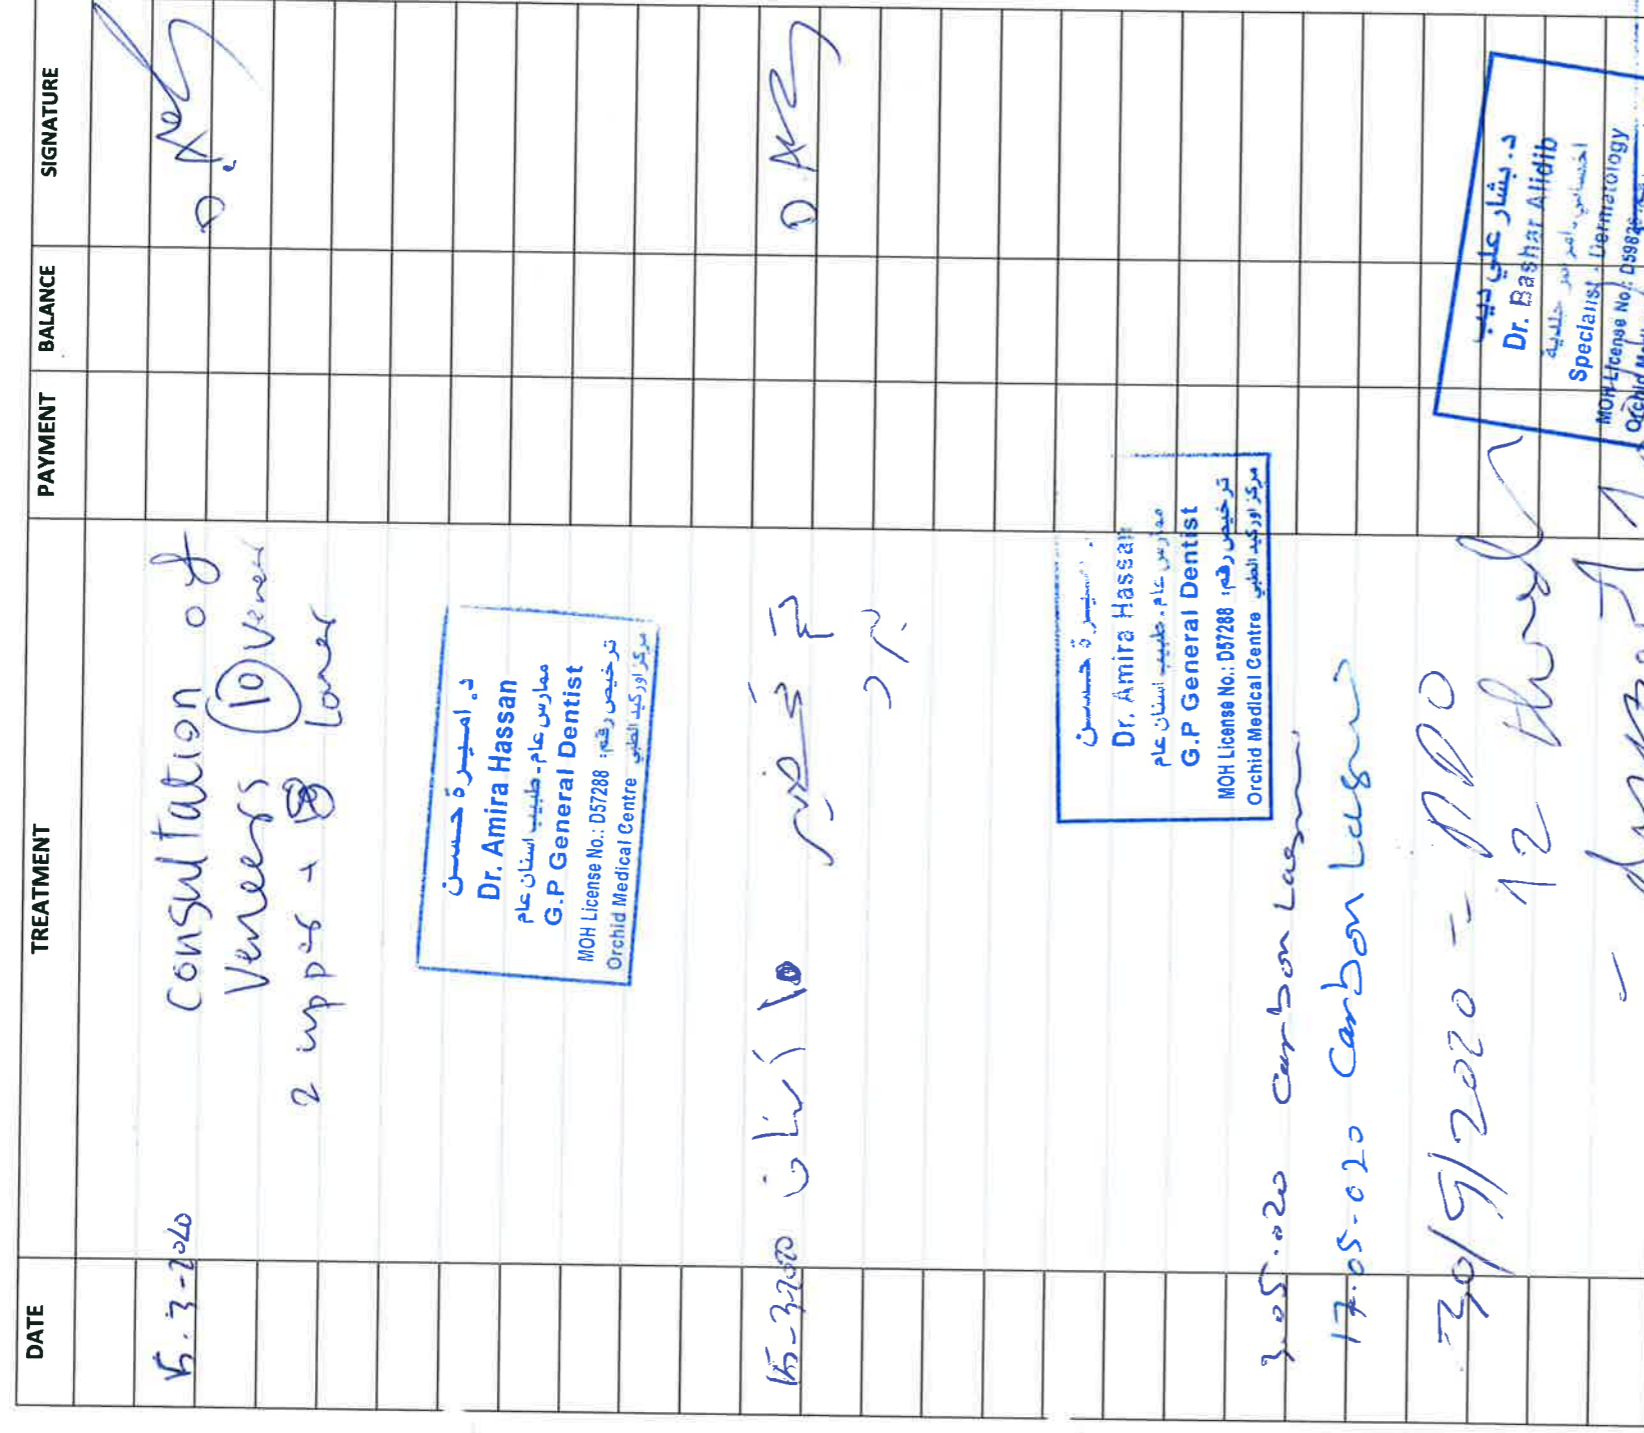 DATE TREATMENT PAYMENT BALANCE SIGNATURE
15-3-2020 Consultation of
Veneers 10 Vener
2 upper + 8 Lower
د. اميرة حسن
Dr. Amira Hassan
ممارس عام - طبيب اسنان عام
G.P General Dentist
MOH License No.: D57288 :ترخيص رقم
Orchid Medical Centre مركز اوركيد الطبي
15-3-2020 ١٠ اسنان تحضير
برد
حسن
Dr. Amira Hassan
ممارس عام - طبيب اسنان عام
G.P General Dentist
MOH License No.: D57288 :ترخيص رقم
Orchid Medical Centre مركز اوركيد الطبي
3.05.020 Carbon Laser
17.05-020 Carbon Laser
30/5/2020 - PDO
12 thread
د. بشار علي ديب
Dr. Bashar Alidib
Specialist - Dermatology
MOH License No.: